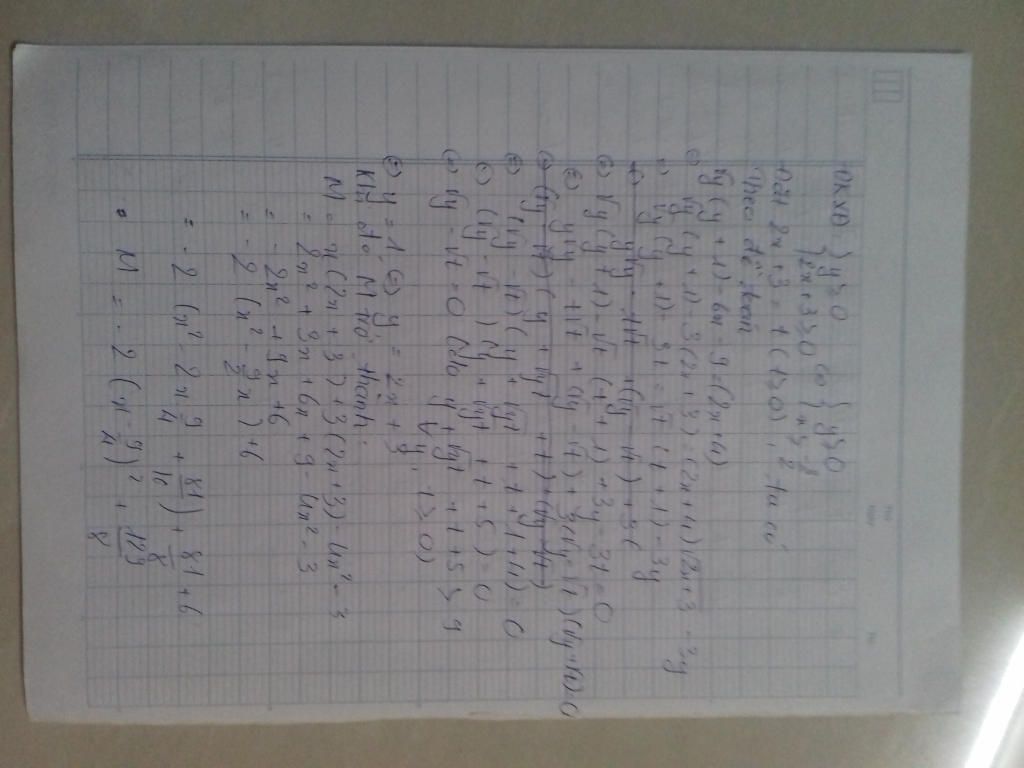 ĐKXĐ { y ≥ 0
2x + 3 ≥ 0 ⇔ { y ≥ 0
x ≥ -3/2
Đặt 2x + 3 = t (t ≥ 0), ta có
Theo đề
√y (y + 1) - 6x - 9 = (2x + 4)
⇔ √y (y + 1) - 3(2x + 3) = (2x + 4)√2x+3 - 3y
⇔ √y (y + 1) - 3t = √t (t + 1) - 3y
⇔ √y (y + 1) - √t (t + 1) + 3y - 3t = 0
⇔ y√y - t√t + (√y - √t) + 3(√y - √t)(√y + √t) = 0
⇔ (√y - √t)(y + √yt + t + 1
⇔ (√y - √t)
⇔ √y - √t = 0 (do y + √yt + t +
∀ y, t ≥ 0)
⇔ y = t ⇔ y = 2x + 3
Khi đó M trở thành:
M = x(2x + 3) + 3(2x + 3) - 4x² - 3
= 2x² + 3x + 6x + 9 - 4x² - 3
= -2x² + 9x + 6
= -2 (x² - 9/2 x) + 6
= -2 (x² - 2x 9/4 + 81/16) + 81/8 + 6
M = -2 (x - 9/4)² + 129/8